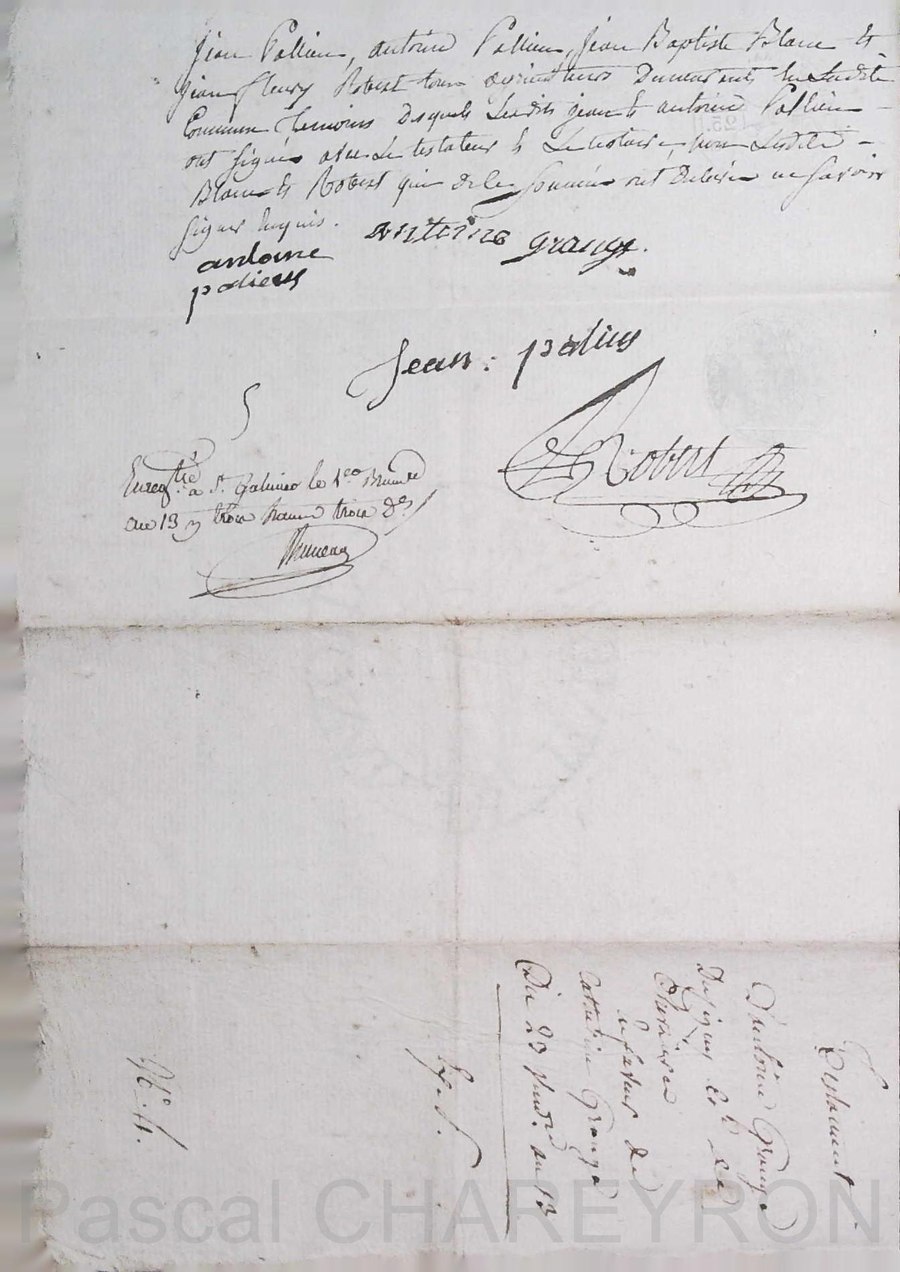 Jean Pallieu, antoine Pallieu, Jean Baptiste Blanc et
jean fleury Robert tous demeurants en Ladite
Commune temoins desquels Lesdits jean et antoine Pallieu
ont signés avec Le testateur et Le notaire non Lesdits
Blanc et Robert qui de ce ont declaré ne savoir
signer requis.
antoine grange.
antoine
palieus
jean: palius
Robert
Enregtré à St. Galmier le 1er Brumre
an 13 trois francs trois d
Testament
D'antoine Grange
en faveur de
Catherine Grange
Du 23 vend. an 13
Exp.
No. 4.
Pascal CHAREYRON